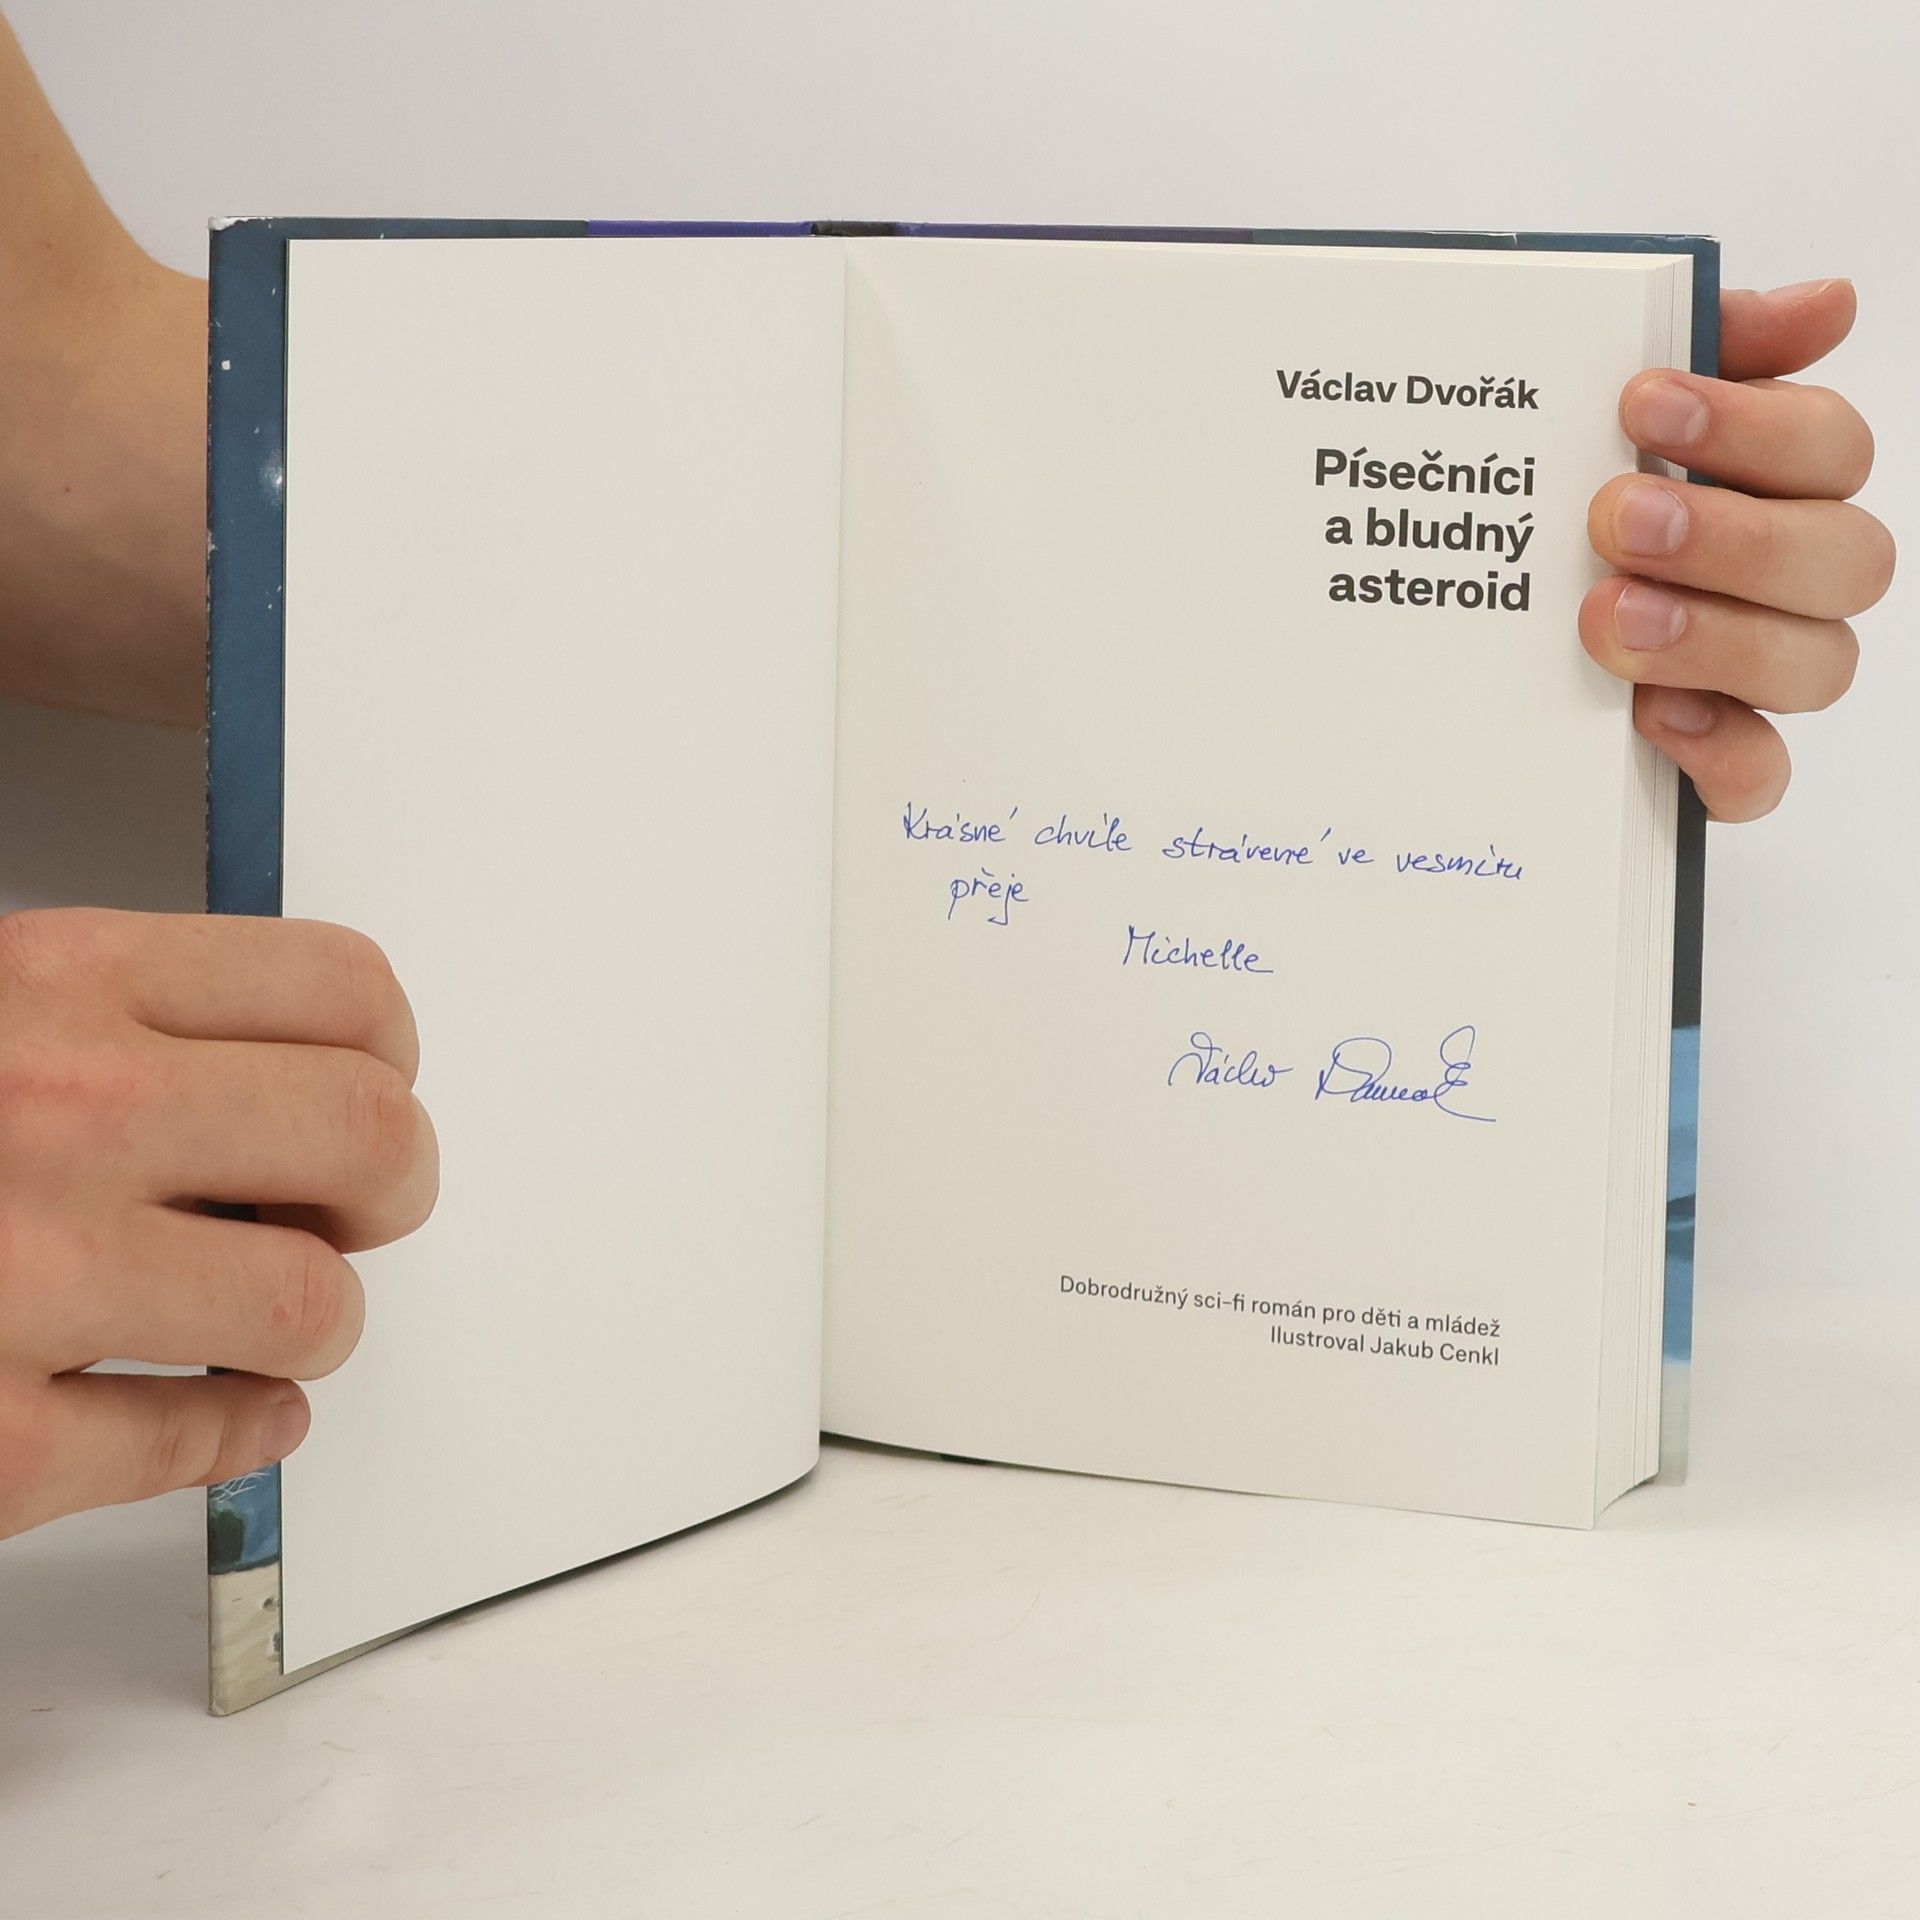 Václav Dvořák
Písečníci
a bludný
asteroid
Krásné chvíle strávené ve vesmíru
přeje
Michelle
Václav Dvořák
Dobrodružný sci-fi román pro děti a mládež
Ilustroval Jakub Cenkl